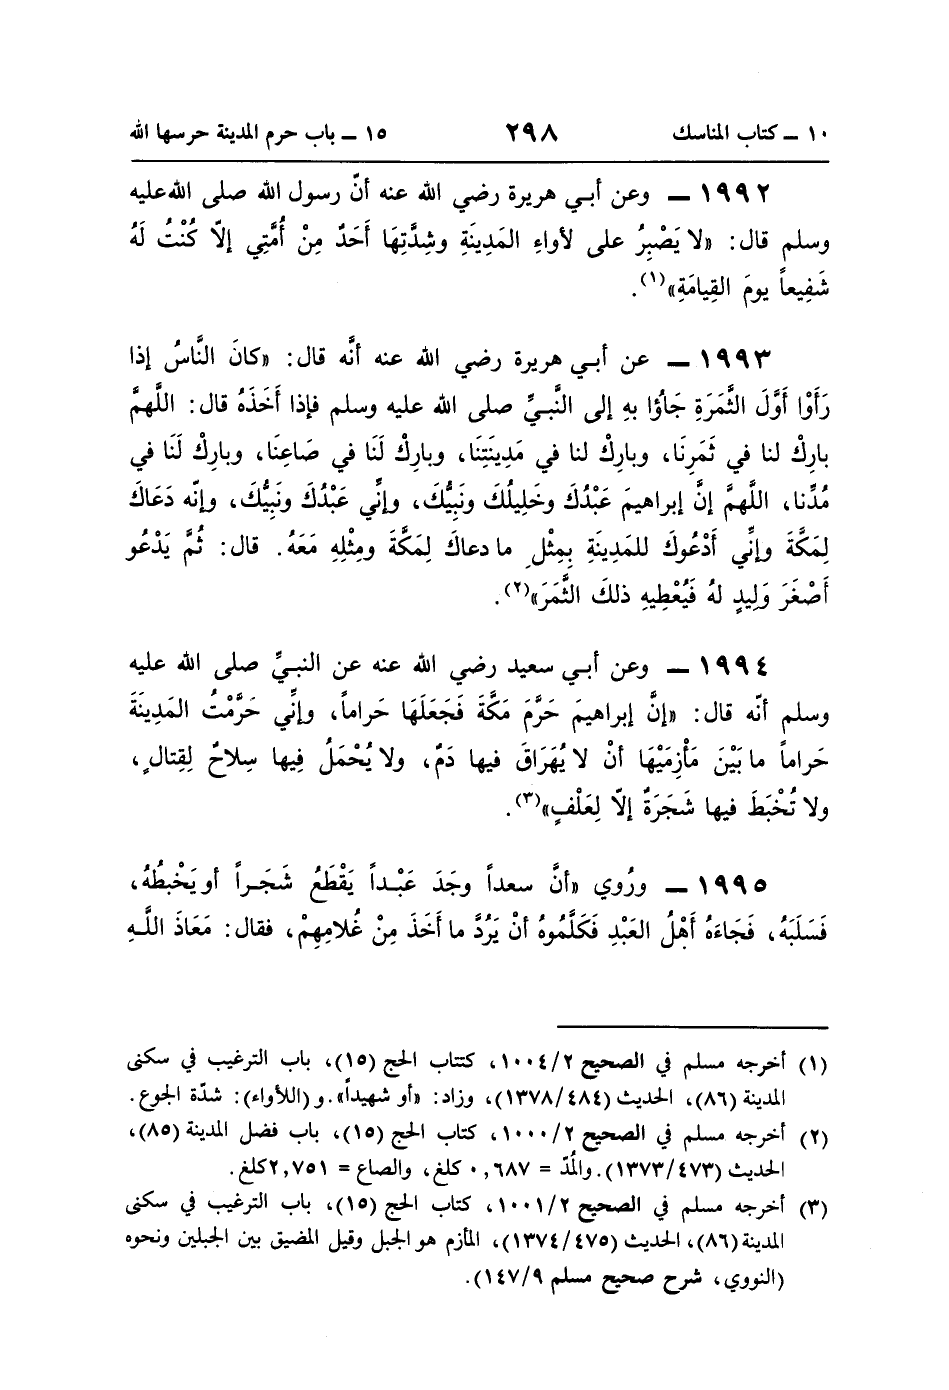 ١٠ ــ كتاب المناسك ٢٩٨ ١٥ ــ باب حرم المدينة حرسها الله
١٩٩٢ ــ وعن أبـي هريرة رضي الله عنه أنّ رسول الله صلى الله عليه
وسلم قال: «لا يَصْبِرُ على لأواءِ المَدِينَةِ وشِدَّتِهَا أَحَدٌ مِنْ أُمَّتِي إلّا كُنْتُ لَهُ
شَفِيعاً يومَ القِيامَةِ»(١).
١٩٩٣ ــ عن أبـي هريرة رضي الله عنه أنَّه قال: «كانَ النَّاسُ إذا
رَأَوْا أَوَّلَ الثَّمَرَةِ جَاؤا بهِ إلى النَّبـيِّ صلى الله عليه وسلم فإذا أَخَذَهُ قال: اللَّهمَّ
بارِكْ لنا في ثَمَرِنَا، وبارِكْ لنا في مَدِينَتِنَا، وبارِكْ لَنَا في صَاعِنَا، وبارِكْ لَنَا في
مُدِّنا، اللَّهمَّ إنَّ إبراهيمَ عَبْدُكَ وخَلِيلُكَ ونَبِيُّكَ، وإنِّي عَبْدُكَ ونَبِيُّكَ، وإنّه دَعَاكَ
لِمَكَّةَ وإنِّي أَدْعُوكَ للمَدِينَةِ بِمِثْلِ ما دعاكَ لِمَكَّةَ ومِثْلِهِ مَعَهُ. قال: ثُمَّ يَدْعُو
أَصْغَرَ وَلِيدٍ لهُ فَيُعْطِيهِ ذلكَ الثَّمَرَ»(٢).
١٩٩٤ ــ وعن أبـي سعيد رضي الله عنه عن النبـيِّ صلى الله عليه
وسلم أنّه قال: «إنَّ إبراهيمَ حَرَّمَ مَكَّةَ فَجَعَلَهَا حَراماً، وإنِّي حَرَّمْتُ المَدِينَةَ
حَراماً ما بَيْنَ مَأْزِمَيْهَا أنْ لا يُهَرَاقَ فيها دَمٌ، ولا يُحْمَلُ فِيها سِلاحٌ لِقِتالٍ،
ولا تُخْبَطَ فيها شَجَرَةٌ إلّا لِعَلْفٍ»(٣).
١٩٩٥ ــ ورُوي «أنَّ سعداً وجَدَ عَبْـداً يَقْطَعُ شَجَـراً أو يَخْبِطُهُ،
فَسَلَبَهُ، فَجَاءَهُ أَهْلُ العَبْدِ فَكَلَّمُوهُ أنْ يَرُدَّ ما أَخَذَ مِنْ غُلامِهِمْ، فقال: مَعَاذَ اللَّـهِ
(١) أخرجه مسلم في الصحيح ١٠٠٤/٢، كتتاب الحج (١٥)، باب الترغيب في سكنى
المدينة (٨٦)، الحديث (١٣٧٨/٤٨٤)، وزاد: «أو شهيداً». و (اللأواء): شدّة الجوع.
(٢) أخرجه مسلم في الصحيح ١٠٠٠/٢، كتاب الحج (١٥)، باب فضل المدينة (٨٥)،
الحديث (١٣٧٣/٤٧٣). والمُدّ = ٠,٦٨٧ كلغ، والصاع = ٢,٧٥١ كلغ.
(٣) أخرجه مسلم في الصحيح ١٠٠١/٢، كتاب الحج (١٥)، باب الترغيب في سكنى
المدينة (٨٦)، الحديث (١٣٧٤/٤٧٥)، المأزم هو الجبل وقيل المضيق بين الجبلين ونحوه
(النووي، شرح صحيح مسلم ١٤٧/٩).